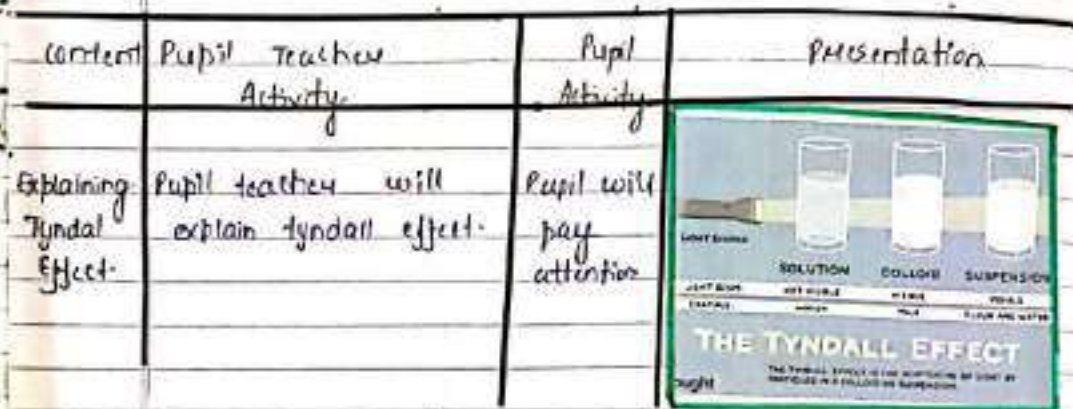 content Pupil Teacher Activity. Pupil Activity Presentation
Explaining Tyndal Effect.
Pupil teacher will explain tyndall effect.
Pupil will pay attention
LIGHT SOURCE
SOLUTION COLLOID SUSPENSION
LIGHT BEAM NOT VISIBLE VISIBLE VISIBLE
EXAMPLE MILK FLOUR AND WATER
THE TYNDALL EFFECT
THE TYNDALL EFFECT IS THE SCATTERING OF LIGHT BY
PARTICLES IN A COLLOID OR SUSPENSION